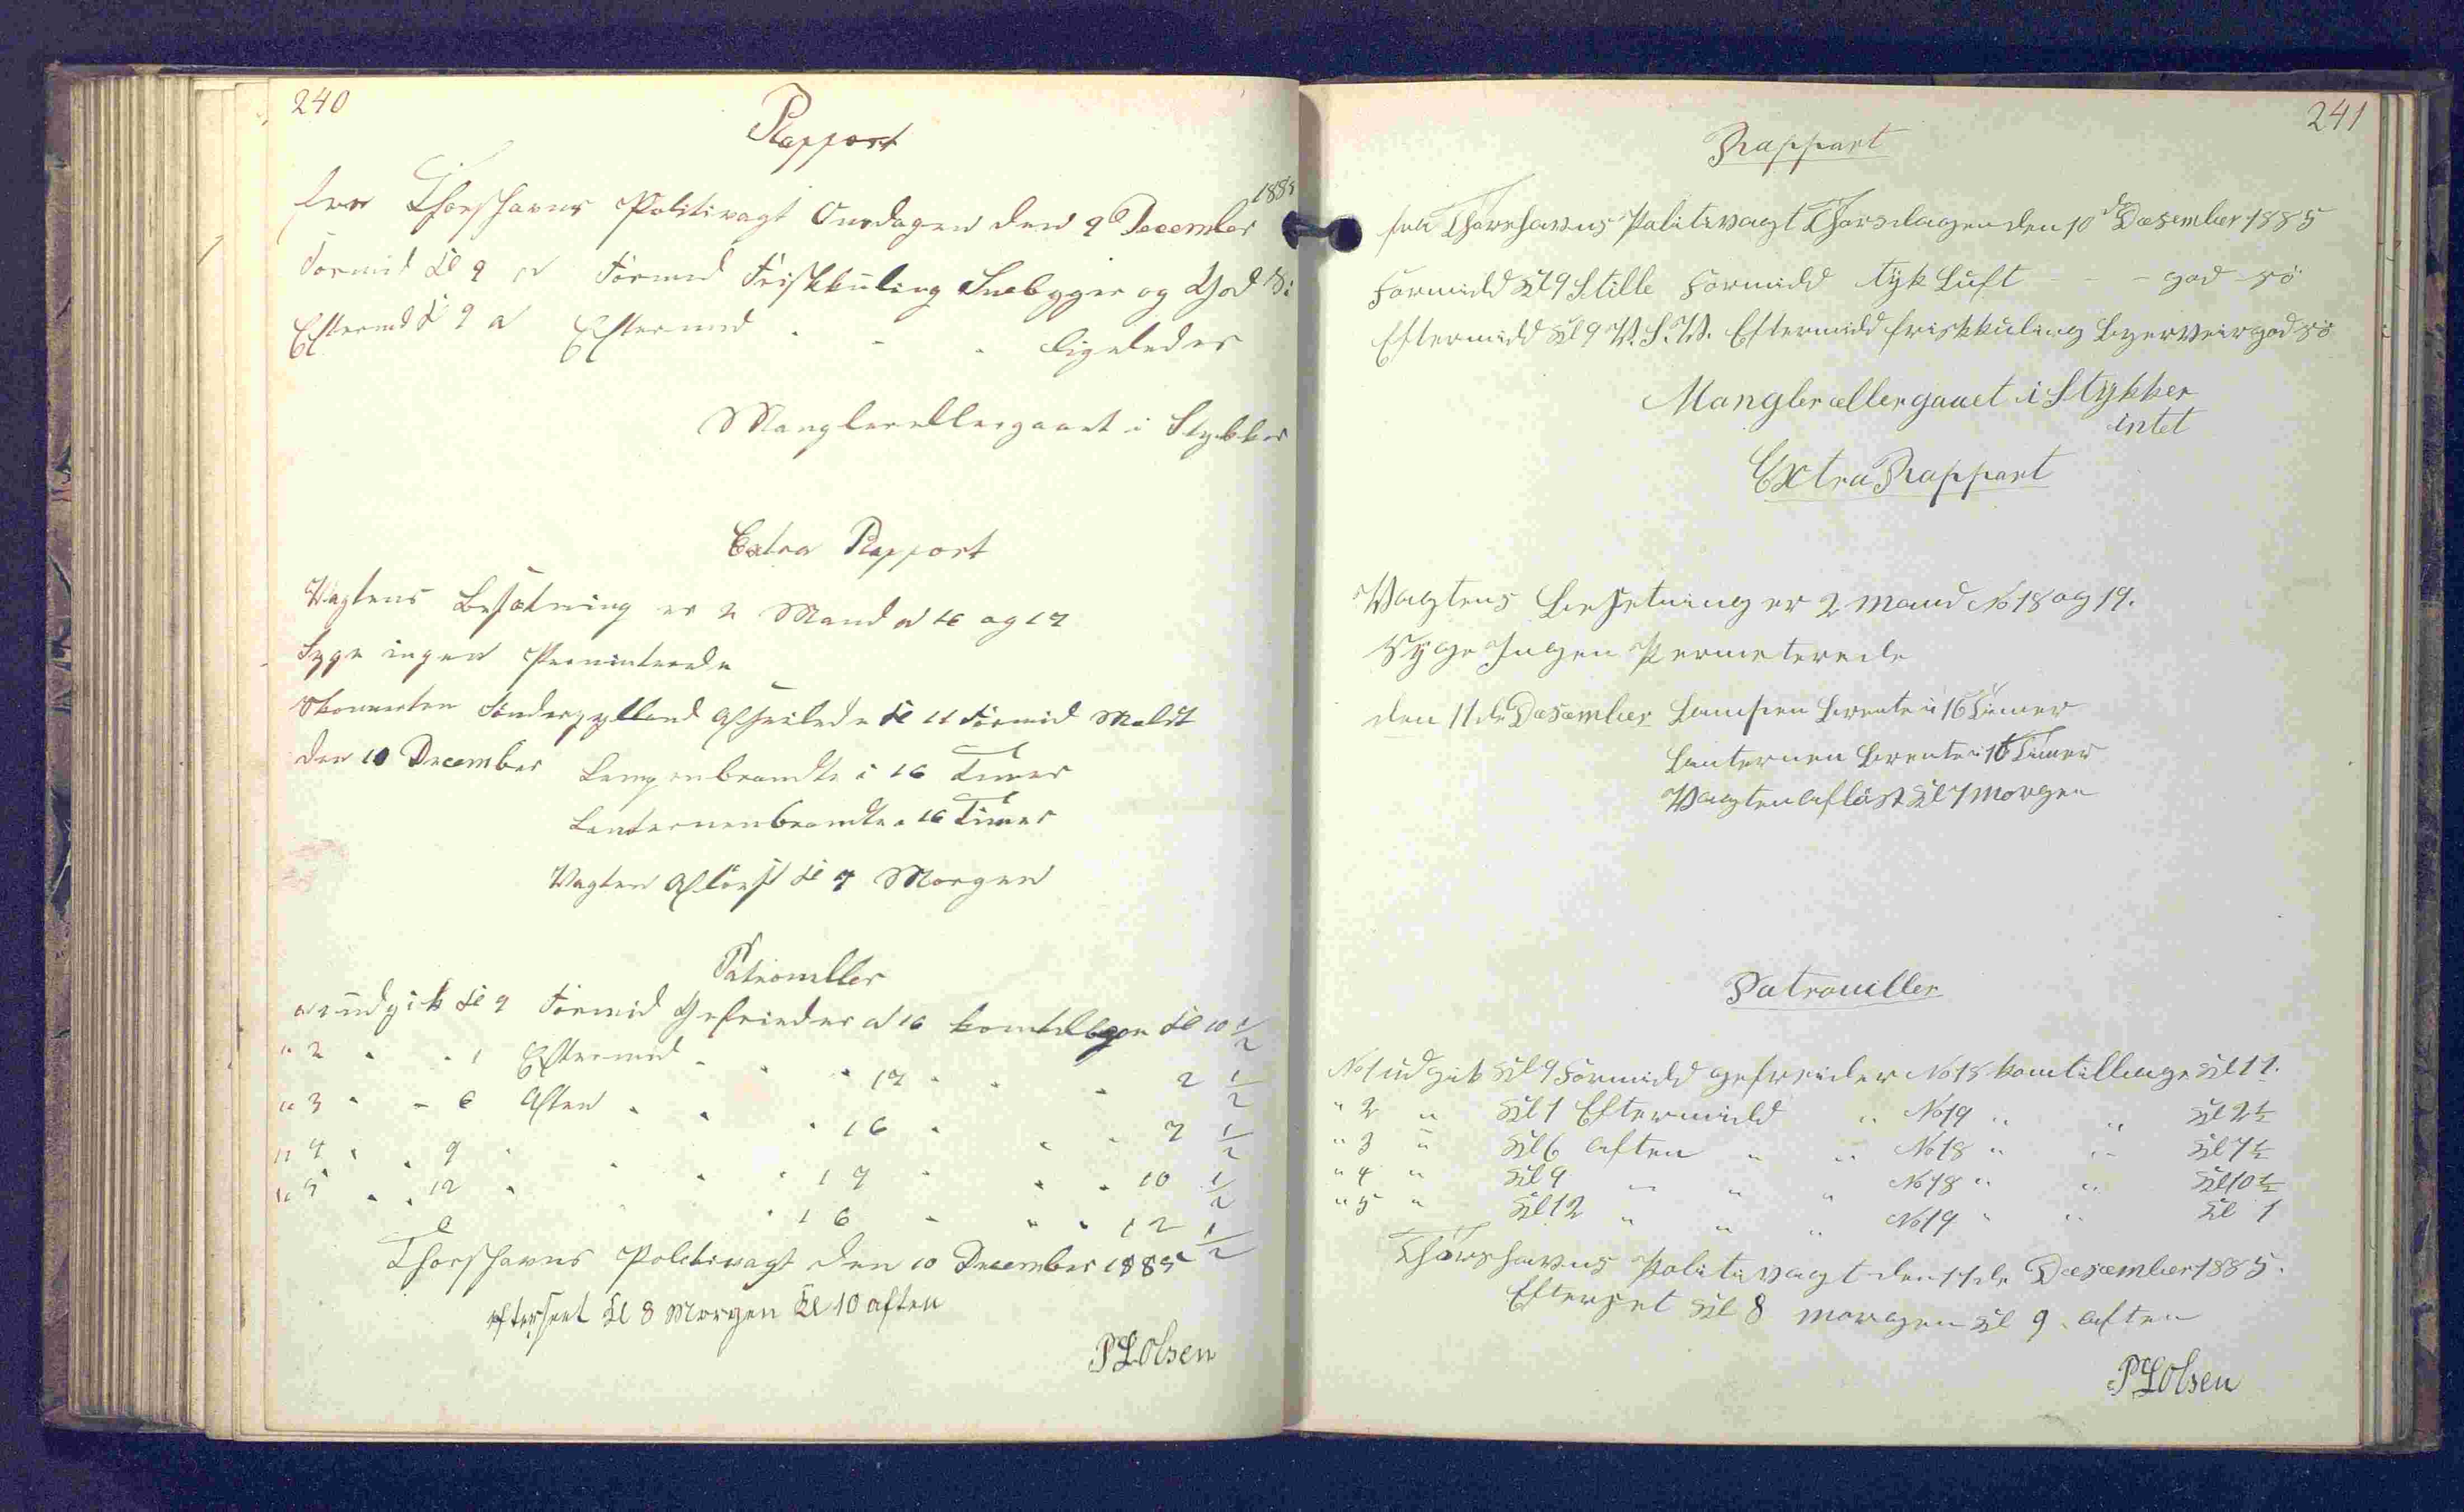 240
Rapport
fra Thorshavns Politivagt Onsdagen den 9de December 1885
Formid Kl 9 N Formid Friskkuling Snebyger og God Sö
Eftermd Kl 9 N Eftermid - - - ligeledes
Manglerellergaaet i Stykker
Extra Rapport
Vagtens Besætning er 2 Mand N 16 og 17
Syge ingen Permiterede
Skonnerten Sönderjylland Afseilede Kl 11 Formid
den 10 December Lampenbrændte i 16 Timer
Lanternenbrændte i 16 Timer
Vagten Aflöest Kl 7 Morgen
Patrouller
N 1 udgik Kl 9 Formid Gefreider N 16 komtilbage Kl 10 1/2
" 2 " " 1 Eftermid " " " 17 " " " 2 1/2
" 3 " " 6 Aften " " " 16 " " " 7 1/2
" 4 " " 9 " " " " 17 " " " 10 1/2
" 5 " " 12 " " 16 " " " 12 1/2
Thorshavns Politivagt den 10 December 1885
efterseet Kl 8 Morgen Kl 10 aften
P Olsen
241
Rappart
fra Thorshavns Politivagt Thorsdagen den 10de Desember 1885
Formidd Kl 9 Stille Formidd tyk Luft - - - god sö
Eftermidd Kl 9 V.S.V. Eftermidd friskkuling Bygerveir god sö
Mangler ællergaaet i Stykker
intet
Extra Rappart
Vagtens Besetning er 2 Mand No 18 og 19.
Syge Ingen Permeterede
den 11de Desember Lampen brente i 16 Timer
Lanternen brente i 16 Timer
Vagten aflöst Kl 7 Morgen
Patrouiller
No 1 udgik Kl 9 Formidd gefreider No 18 komtilbage Kl 11.
" 2 " Kl 1 Eftermidd " No 19 " " Kl 2 1/2
" 3 " Kl 6 aften " " No 18 " " Kl 7 1/2
" 4 " Kl 9 " " " No 18 " " Kl 10 1/2
" 5 " Kl 12 " " " No 19 " " Kl 1
Thorshavns Politivagt den 11de Desember 1885.
Efterset Kl 8 morgen Kl 9 aften
P Olsen